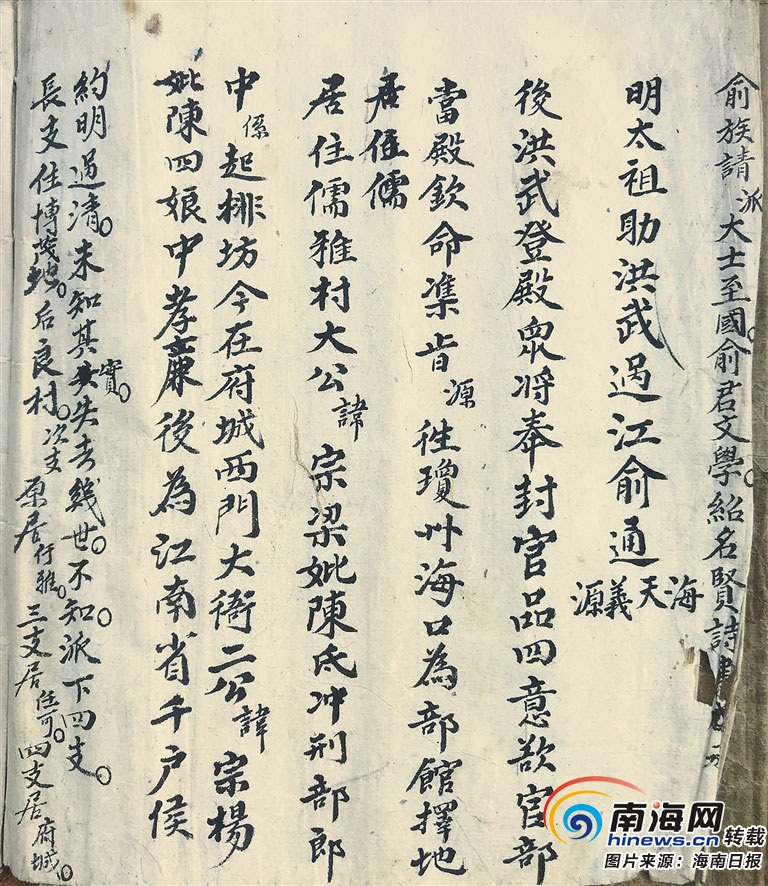 俞族請派大士至國俞君文學紹名賢詩
明太祖助洪武過江俞通海天義源
後洪武登殿眾將奉封官品四意欲官部
當殿欽命準旨源徃瓊州海口為部館擇地
居住儒
居住儒雅村大公諱宗梁妣陳氏冲刑部郎
中係起排坊今在府城西門大衙二公諱宗楊
妣陳四娘中孝廉後為江南省千户侯
約明過清未知其實失去幾世不知派下四支
長支住博茂后良村次支原居行雅三支居住可四支居府城
南海网
hinews.cn 转载
图片来源：海南日报